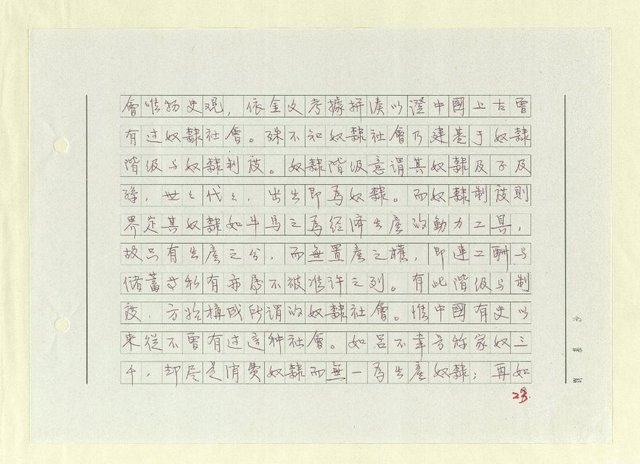 會唯物史观，依金文考據拼凑以證中國上古曾
有过奴隸社會。殊不知奴隸社會乃建基于奴隸
階级与奴隸制度。奴隸階级意謂其奴隸及子及
孫，世々代々，出生即為奴隸。而奴隸制度則
界定其奴隸如牛馬之為经济生產的動力工具，
故只有生產之分，而無置產之權，即連工酬与
儲蓄等私有亦屬不被准许之列。有此階级与制
度，方始構成所謂的奴隸社會。惟中國有史以
來從不曾有过這种社會。如呂不韋号称家奴三
千，却尽是消费奴隸而無一為生產奴隸；再如
23.